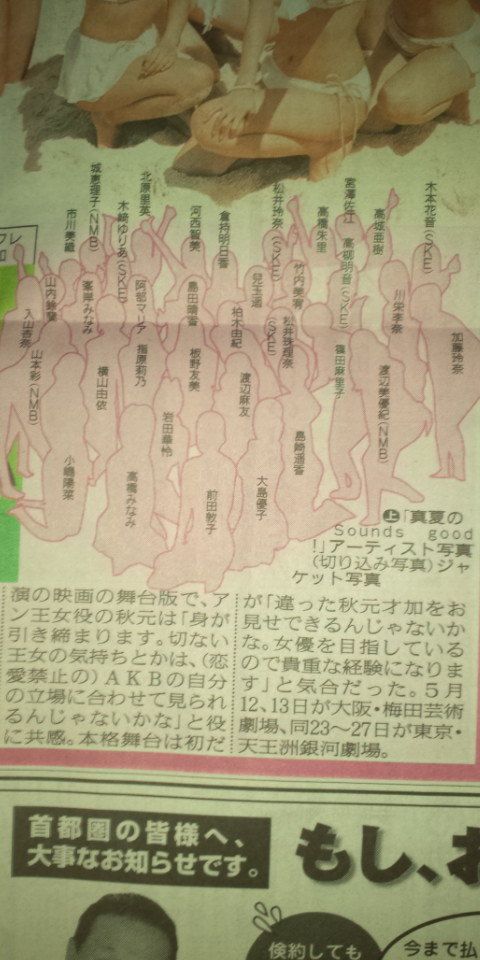 木本花音(SKE)
高城亜樹
宮澤佐江
高柳明音(SKE)
高橋朱里
松井玲奈(SKE)
倉持明日香
河西智美
北原里英
木﨑ゆりあ(SKE)
城恵理子(NMB)
市川美織
川栄李奈
竹内美宥
児玉遥
島田晴香
阿部マリア
峯岸みなみ
山内鈴蘭
入山杏奈
加藤玲奈
渡辺美優紀(NMB)
篠田麻里子
松井珠理奈(SKE)
柏木由紀
渡辺麻友
板野友美
指原莉乃
横山由依
山本彩(NMB)
島崎遥香
大島優子
前田敦子
岩田華怜
高橋みなみ
小嶋陽菜
上「真夏の
Sounds good
!」アーティスト写真
(切り込み写真)ジャ
ケット写真
演の映画の舞台版で、ア
ン王女役の秋元は「身が
引き締まります。切ない
王女の気持ちとかは、(恋
愛禁止の)AKBの自分
の立場に合わせて見られ
るんじゃないかな」と役
に共感。本格舞台は初だ
が「違った秋元才加をお
見せできるんじゃないか
な。女優を目指している
ので貴重な経験になりま
す」と気合だった。5月
12、13日が大阪・梅田芸術
劇場、同23〜27日が東京・
天王洲銀河劇場。
首都圏の皆様へ、
大事なお知らせです。
もし、お
倹約しても
今まで払